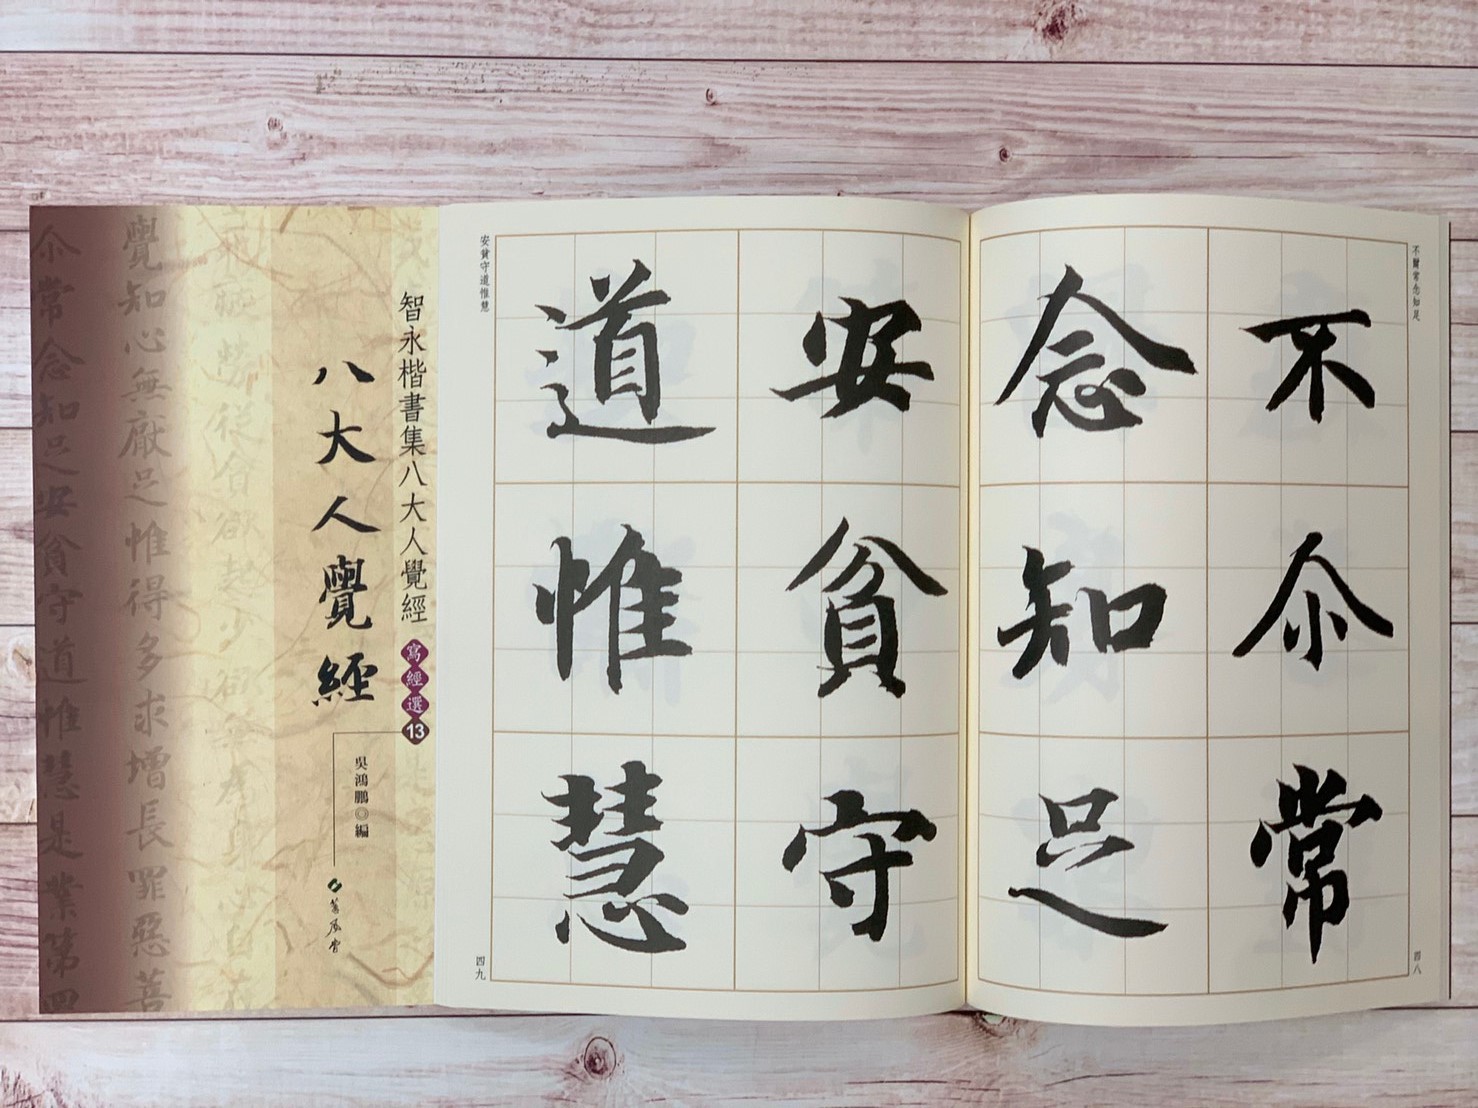 不爾常念知足
不尒常
念知足
四八
安貧守
道惟慧
安貧守道惟慧
四九
智永楷書集八大人覺經
寫經選13
八大人覺經
吳鴻鵬◎編
蕙風堂
疲勞從貪欲起少欲無為身心自在
覺知心無厭足惟得多求增長罪惡菩
尒常念知足安貧守道惟慧是業第四